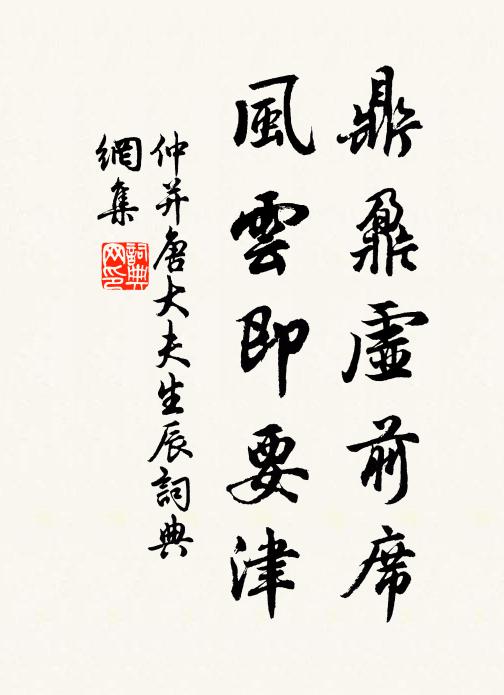 鼎鼐虛前席
風雲即要津
仲并唐大夫生辰詞典
網集
詞典網印